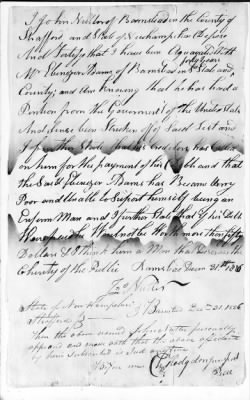 I John Nutter of Barnstead in the County of
Strafford and State of Newhampshire Depose
And Testifies that I have been Acquainted with
fifty years
Mr Ebenezer Adams of Barnstead in State and
County and Am Knowing that he has had a
Pention from the Government of the United States
And has been Stricken off of Said List and
I further State that
on him for the payment of his and that
the Said Ebenezer Adams has Become Very
Poor and Unable to Support himself being an
Man and I further State that if his
Were paid he Would not be Worth more than fifty
Dollars & I think him a Man that Deserves the
Charity of the Publick Barnstead Decm 21th 1826
Jno Nutter
State of New Hampshire
Strafford Barnstead Dec. 21 1826
Then the above named John Nutter personally
appeared and made oath that the above affidavit
by him Subscribed is Just and true
before me